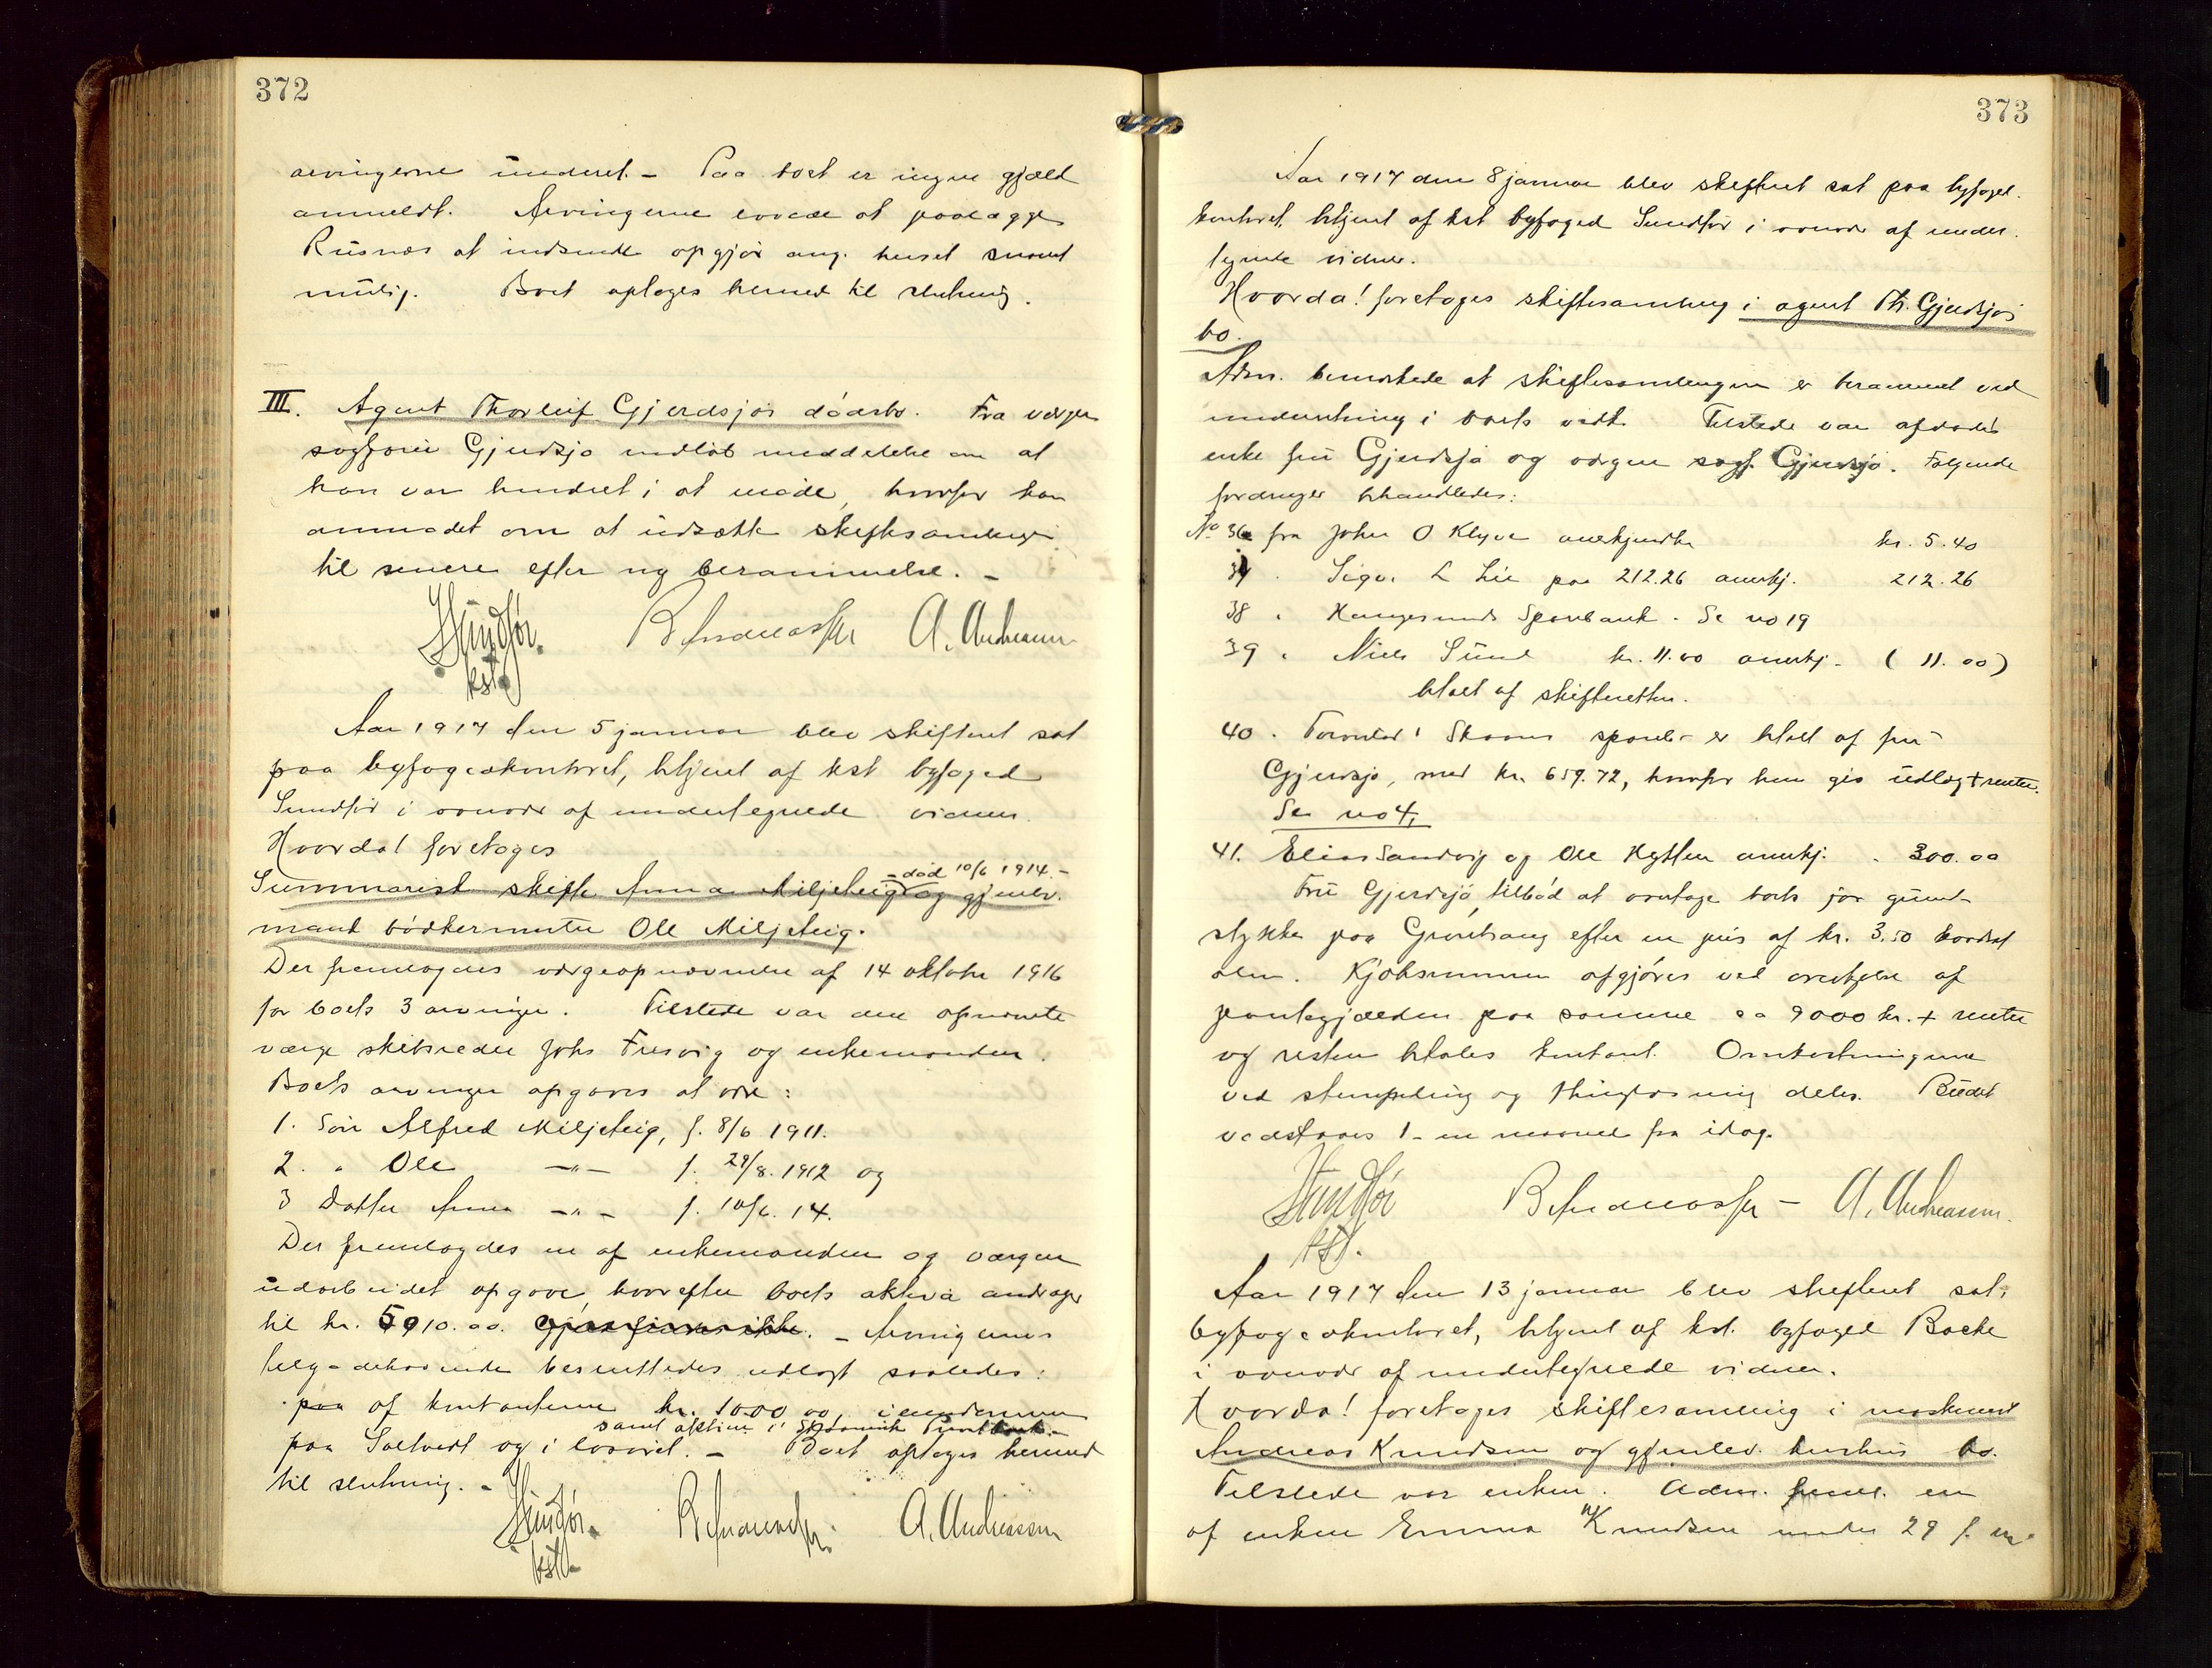 372
arvingerne underret. - Paa boet er ingen gjæld
anmeldt. Arvingerne lovede at paalægge
Rusnæs at indsende opgjør ang. huset snarest
mulig. Boet optages hermed til slutning.
III. Agent Thorleif Gjerdsjøs dødsbo. Fra værgen
sagfører Gjerdsjø indløb meddelelse om at
han var hindret i at møde, hvorfor han
anmodet om at utsætte skiftesamlingen
til senere efter ny berammelse. -
Sundfør. A. Andreassen
kst.
Aar 1917 den 5 januar blev skifteret sat
paa byfogedkontoret, betjent af kst byfoged
Sundfør i overvær af undertegnede vidner.
Hvorda! foretoges
- død 10/6 1914. -
Summarisk skifte Anna Miljeteig og gjenlev.
mand bødkermester Ole Miljeteig.
Der fremlagdes værgeopnævnelse af 14 oktober 1916
for boets 3 arvinger. Tilstede var den opnævnte
værge skibsreder Johs Tresvig og enkemanden.
Boets arvinger opgaves at være:
1. Søn Alfred Miljeteig, f. 8/6 1911.
2. " Ole -"- f. 29/8. 1912 og
3 Datter Anna -"- f. 10/6. 14.
Der fremlagdes en af enkemanden og værgen
udarbeidet opgave, hvorefter boets aktiva andrager
til kr. 5910.00. - Arvingernes
tilgodehavende besluttedes udlagt saaledes:
paa af kontanterne kr. 1000.00, i eiendommen
samt aktier i
paa Saltveit og i løsøret. - Boet optages hermed
til slutning. -
Sundfør. A. Andreassen
kst.
373
Aar 1917 den 8 januar blev skifteret sat paa byfoged.
kontoret, betjent af kst byfoged Sundfør i overvær af under.
tegnede vidner.
Hvorda! foretoges skiftesamling i agent Th. Gjerdsjøs
bo.
Adm. bemærkede at skiftesamlingen er berammet ved
underretning i boets vedk. Tilstede var afdødes
enke fru Gjerdsjø og værgen sagf. Gjerdsjø. Følgende
fordringer behandledes:
No 36 fra John O Klyve anerkjendtes kr. 5.40
37 . Sigv. L Lie paa 212.26 anerkj. 212.26
38 " Haugesunds Sparebank. Se no 19
39 " Niels Sund kr. 11.00 anerkj. - (11.00)
betalt af skifteretten.
40 . Torvestad & Skaare spareb. er betalt af fru
Gjerdsjø, med kr. 659.72, hvorfor hun gis udlæg + renter.
Se no 4.
41. Elias Sandvig og Ole Hytten anerkj. . 300.00
Fru Gjerdsjø, tilbød at overtage boets jord grund-
stykke paa Gronhaug efter en pris af kr. 3.50 kvadrat
alen. Kjøbesummen afgjøres ved overtagelse af
pantegjælden paa samme ca 9000 kr. + renter
og resten betales kontant. Omkostningerne
ved stempling og thinglæsning deles. Budet
vedstaaes 1 - en maaned fra idag.
Sundfør - A. Andreassen.
kst.
Aar 1917 den 13 januar blev skifteret sat,
byfogedkontoret, betjent af kst. byfoged Bache
i overvær af undertegnede vidner.
Hvorda! foretoges skiftesamling i maskinist
Andreas Knudsen og gjenlev. hustrus bo.
Tilstede var enken. Adm. freml. en
af enken Emma Knudsen under 29 f. m.